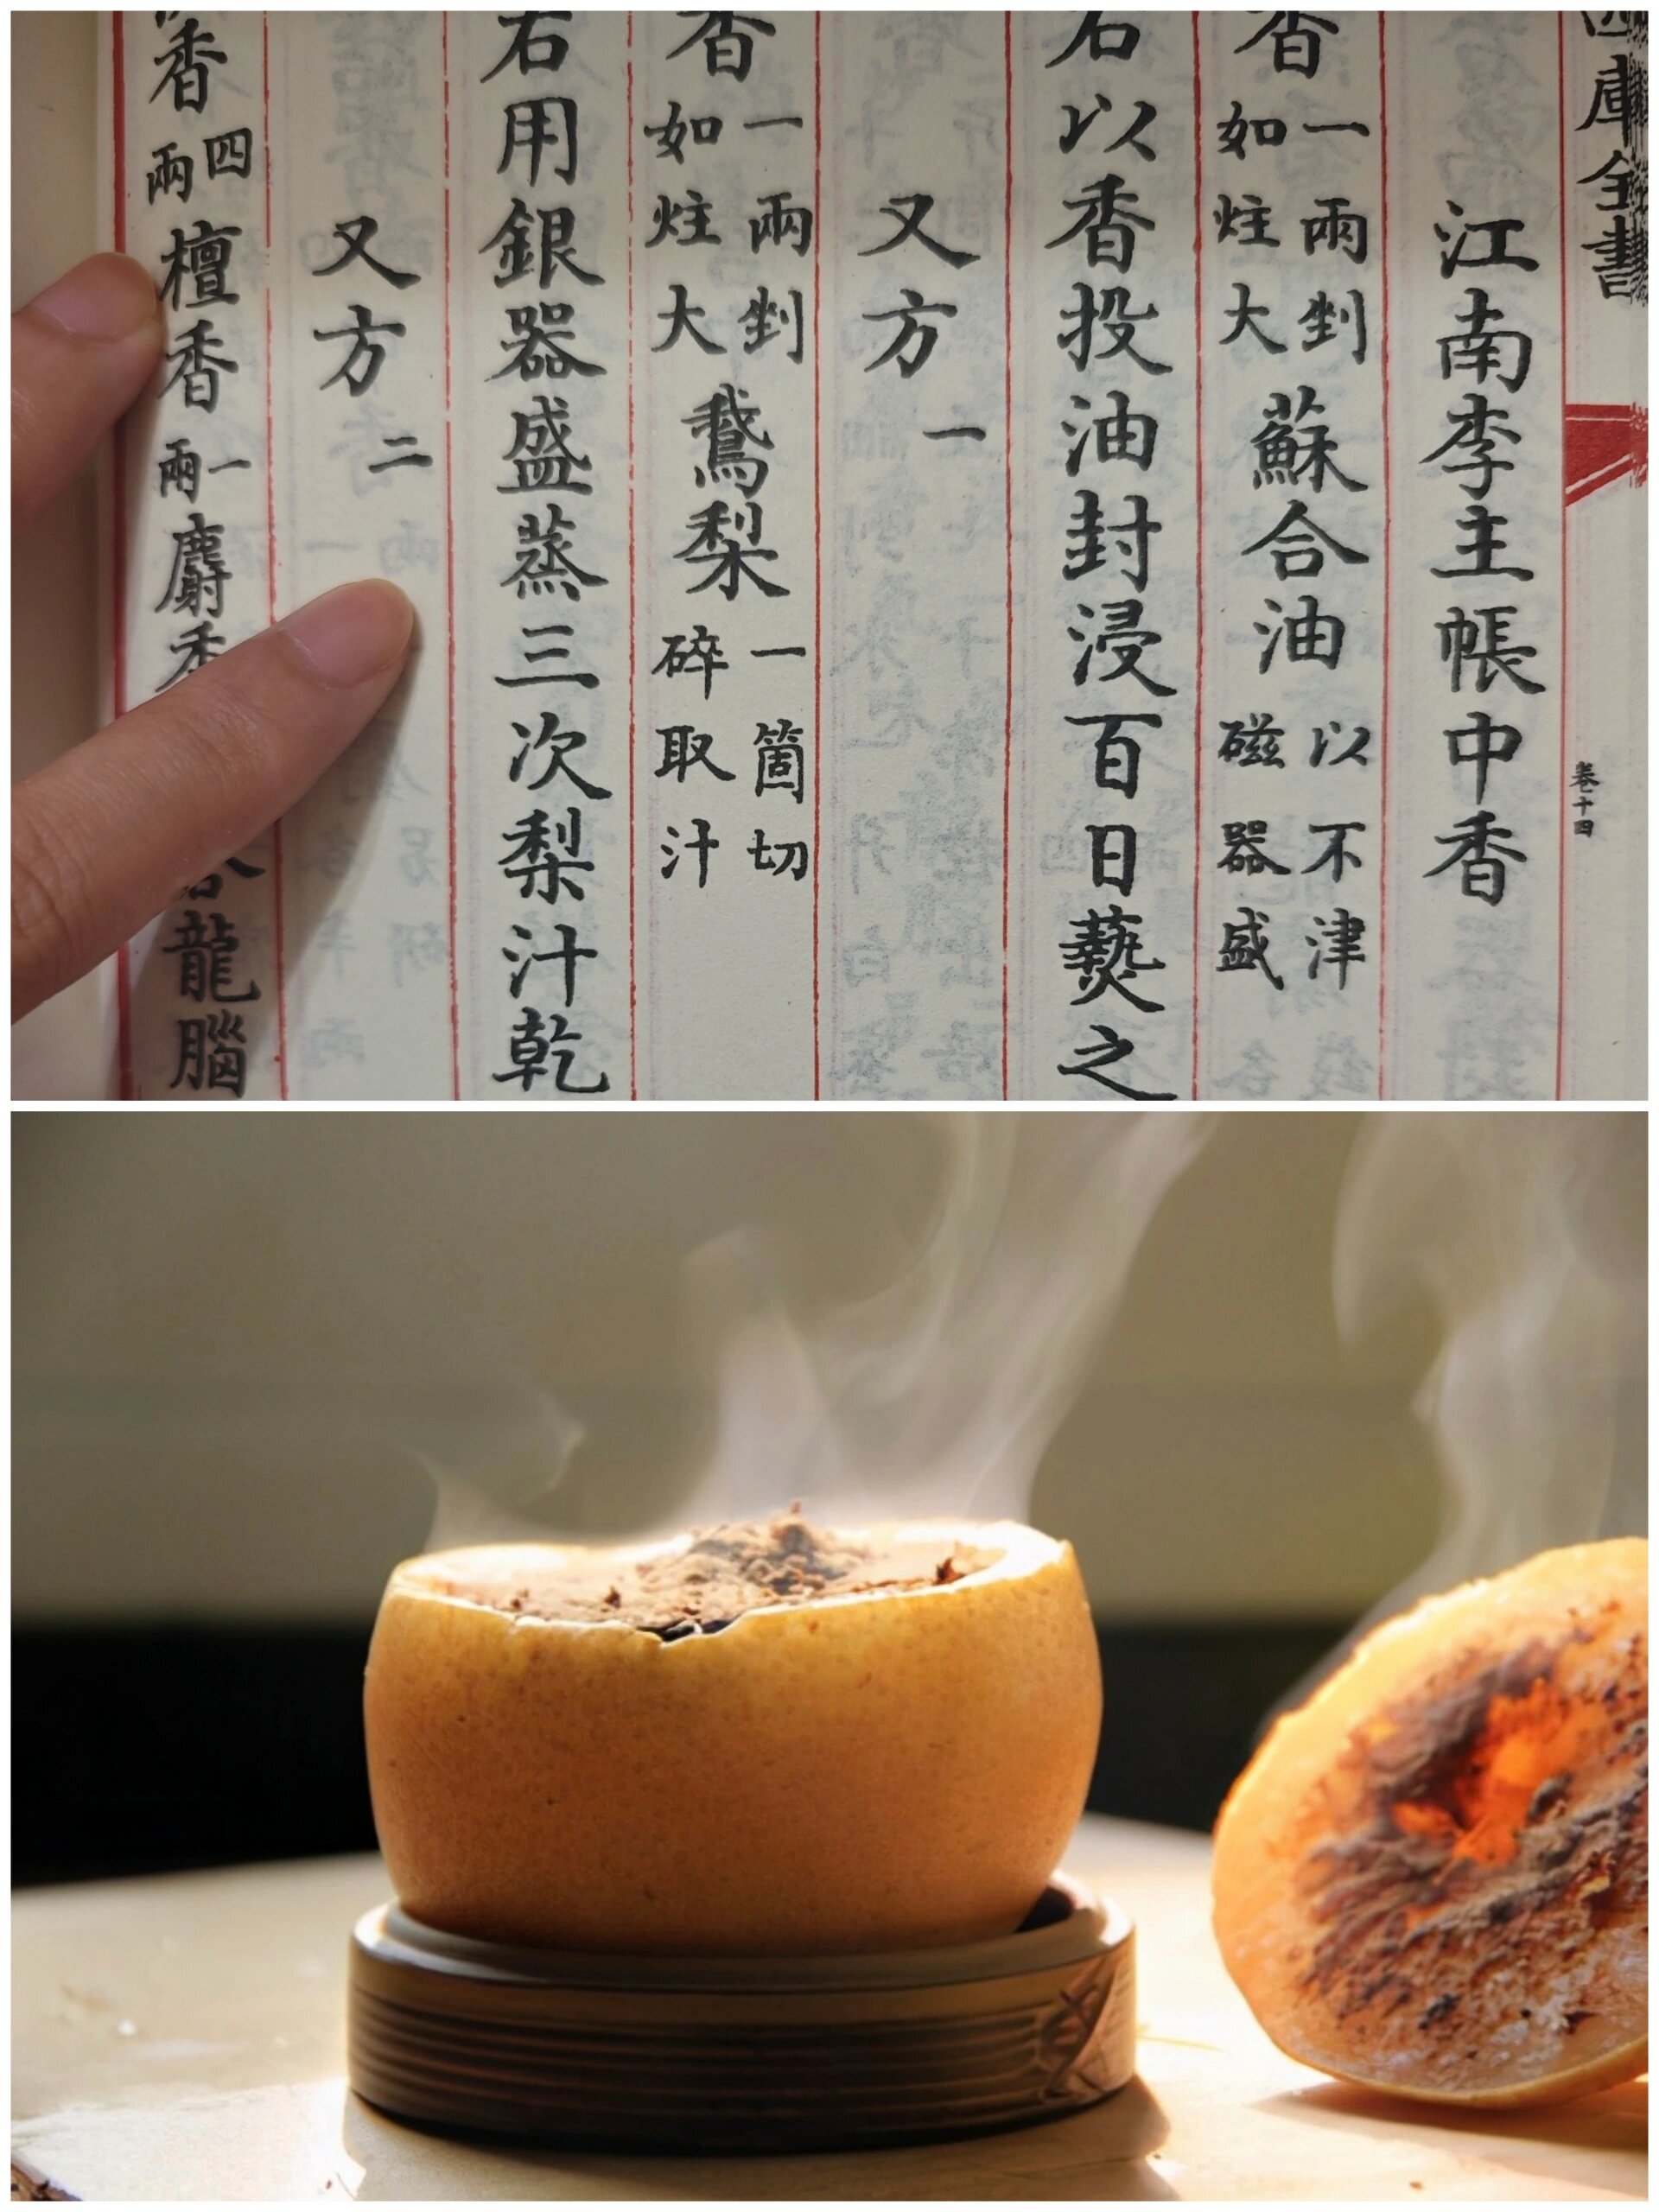 四庫全書 卷十四
江南李主帳中香
香一兩剉如炷大蘇合油以不津磁器盛
右以香投油封浸百日爇之
又方一
香一兩剉如炷大鵞梨一箇切碎取汁
右用銀器盛蒸三次梨汁乾
又方二
香四兩檀香一兩麝香龍腦